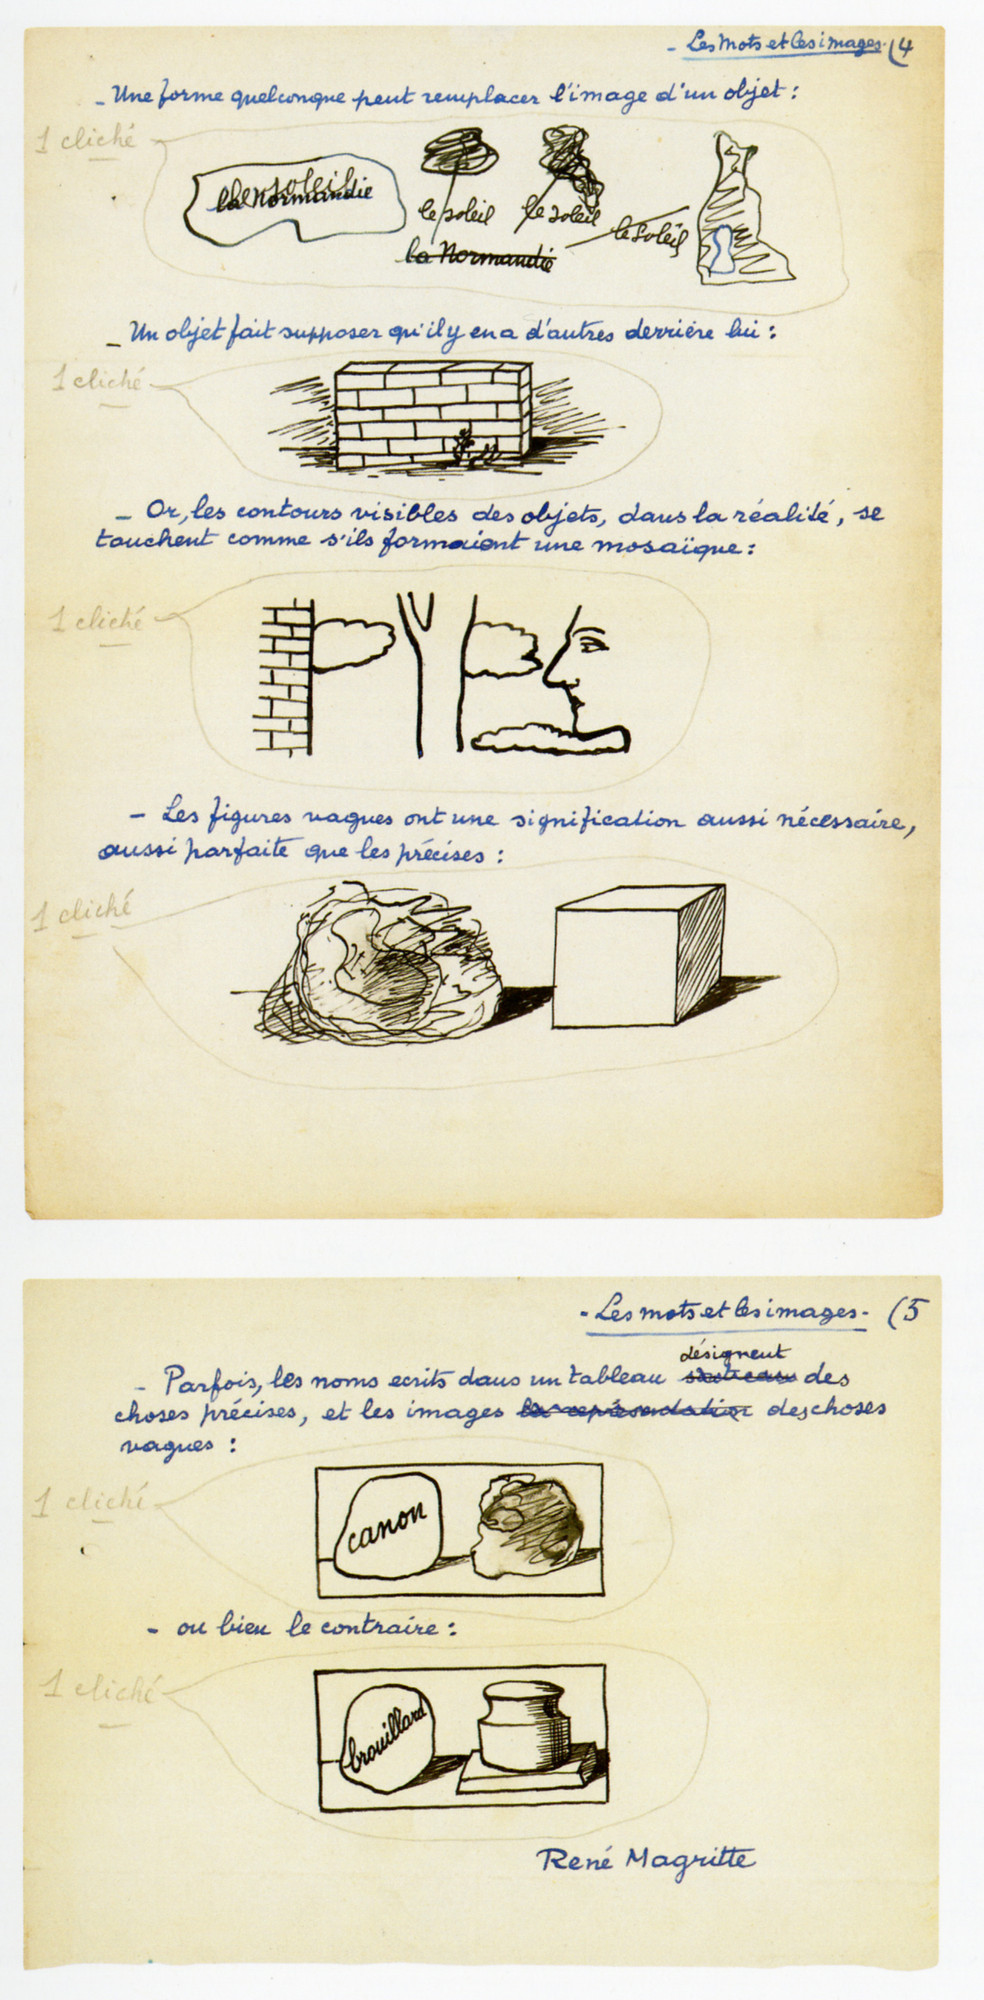 - Les Mots et les images - (4
- Une forme quelconque peut remplacer l'image d'un objet :
1 cliché
la Normandie
le soleil
le soleil
le soleil
la Normandie
- Un objet fait supposer qu'il y en a d'autres derrière lui :
1 cliché
- Or, les contours visibles des objets, dans la réalité, se
touchent comme s'ils formaient une mosaïque :
1 cliché
- Les figures vagues ont une signification aussi nécessaire,
aussi parfaite que les précises :
1 cliché
- Les mots et les images - (5
désignent
- Parfois, les noms ecrits dans un tableau des
choses précises, et les images des choses
vagues :
1 cliché
canon
- ou bien le contraire :
1 cliché
brouillard
René Magritte